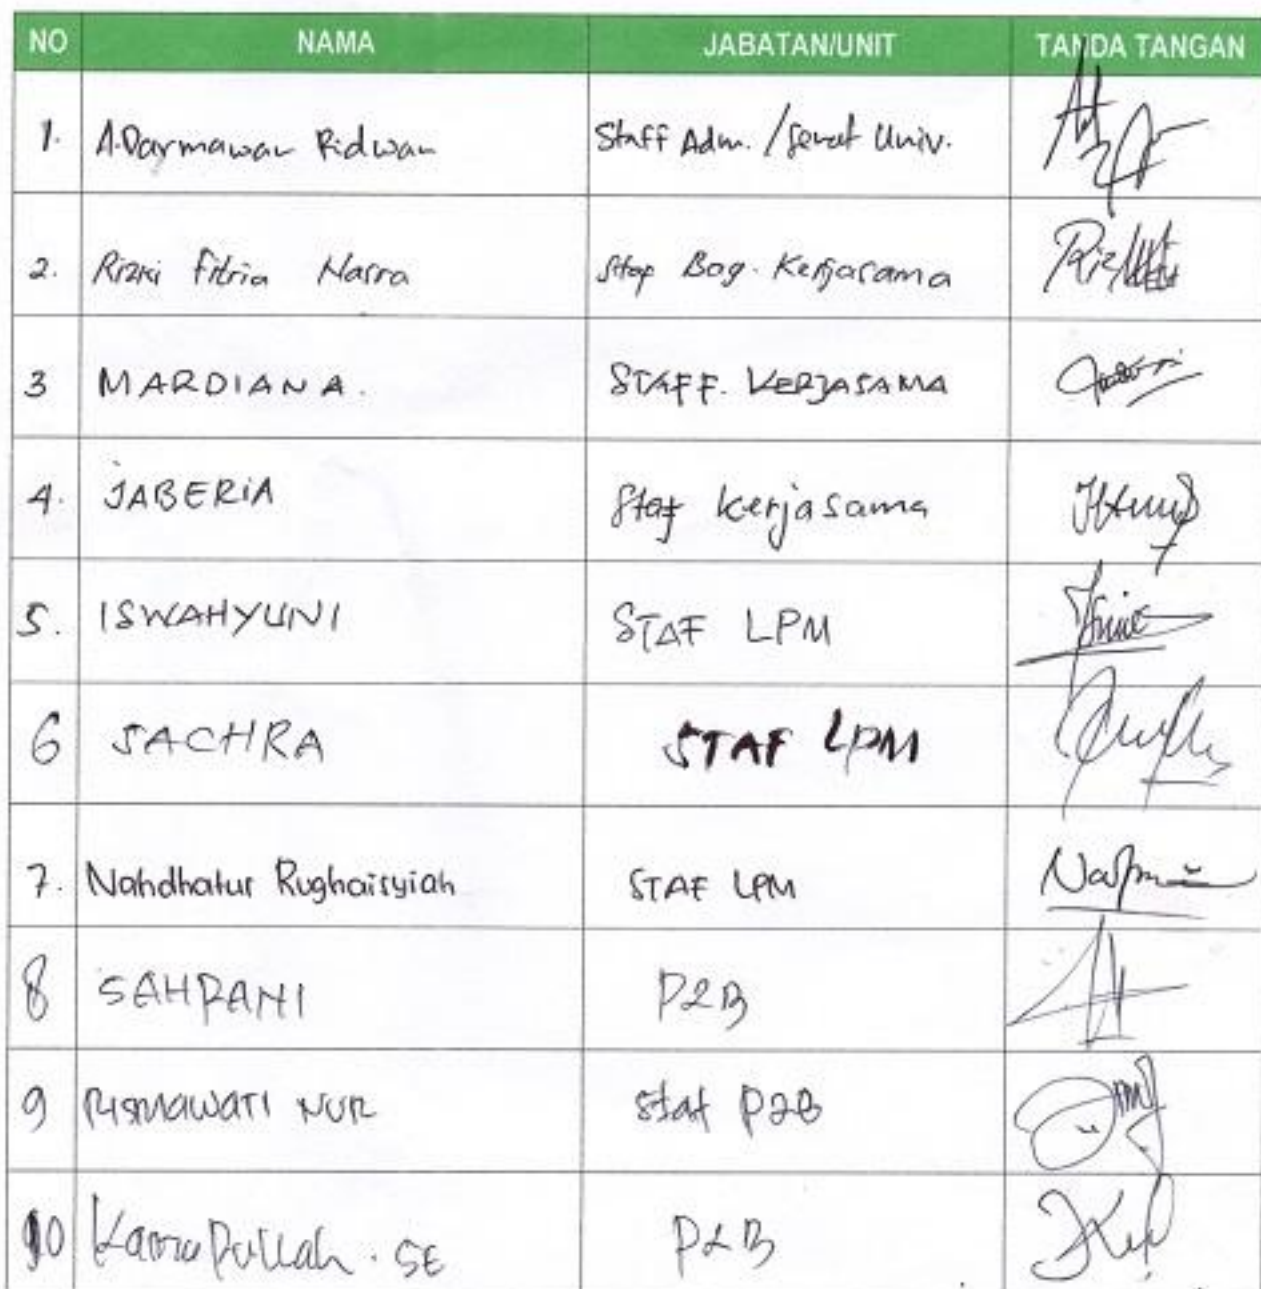 NO NAMA JABATAN/UNIT TANDA TANGAN
1. A.Darmawan Ridwan Staff Adm. / Senat Univ.
2. Rizki Fitria Nasra Staf Bag. Kerjasama
3 MARDIANA. STAFF. KERJASAMA
4. JABERIA Staf kerjasama
5. ISWAHYUNI STAF LPM
6 SACHRA STAF LPM
7. Nahdhatur Rughaisyiah STAF LPM
8 SAHRANI P2B
9 RISMAWATI NUR staf P2B
10 SE P2B